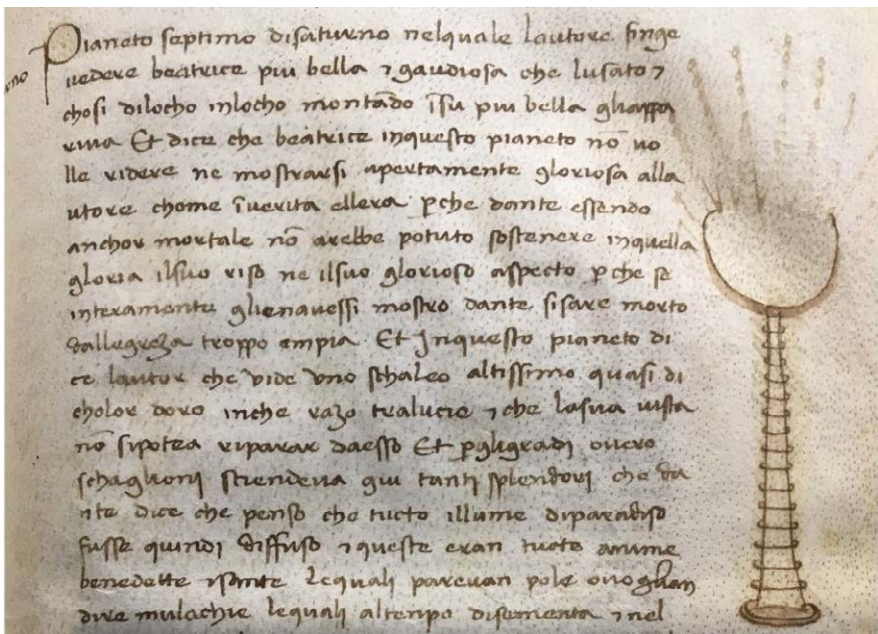 Pianeto septimo disaturno nelquale lautore finge
uedere beatrice piu bella ⁊ gaudiosa che lusato ⁊
chosi dilocho inlocho montãdo ĩsu piu bella gliappa
riua Et dice che beatrice inquesto pianeto nõ uo
lle ridere ne mostrarsi apertamente gloriosa alla
utore chome ĩuerita ellera ꝑche dante essendo
anchor mortale nõ arebbe potuto sostenere inquella
gloria ilsuo riso ne ilsuo glorioso aspecto ꝑche se
interamente glienauessi mostro dante sisare morto
dallegreza troppo ampia Et Inquesto pianeto di
ce lautor che vide vno schaleo altissimo quasi di
cholor doro inche razo tralucie ⁊ che lasua uista
nõ sipotea riparar daesso Et ꝑgligradi ouero
schaglioni sciendeua giu tanti splendori che da
nte dice che penso che tucto illume diparadiso
fusse quindi diffuso ⁊ queste eran tucte anime
benedette ⁊sante lequali pareuan pole
dire mulachie lequali altenpo disementa ⁊ nel